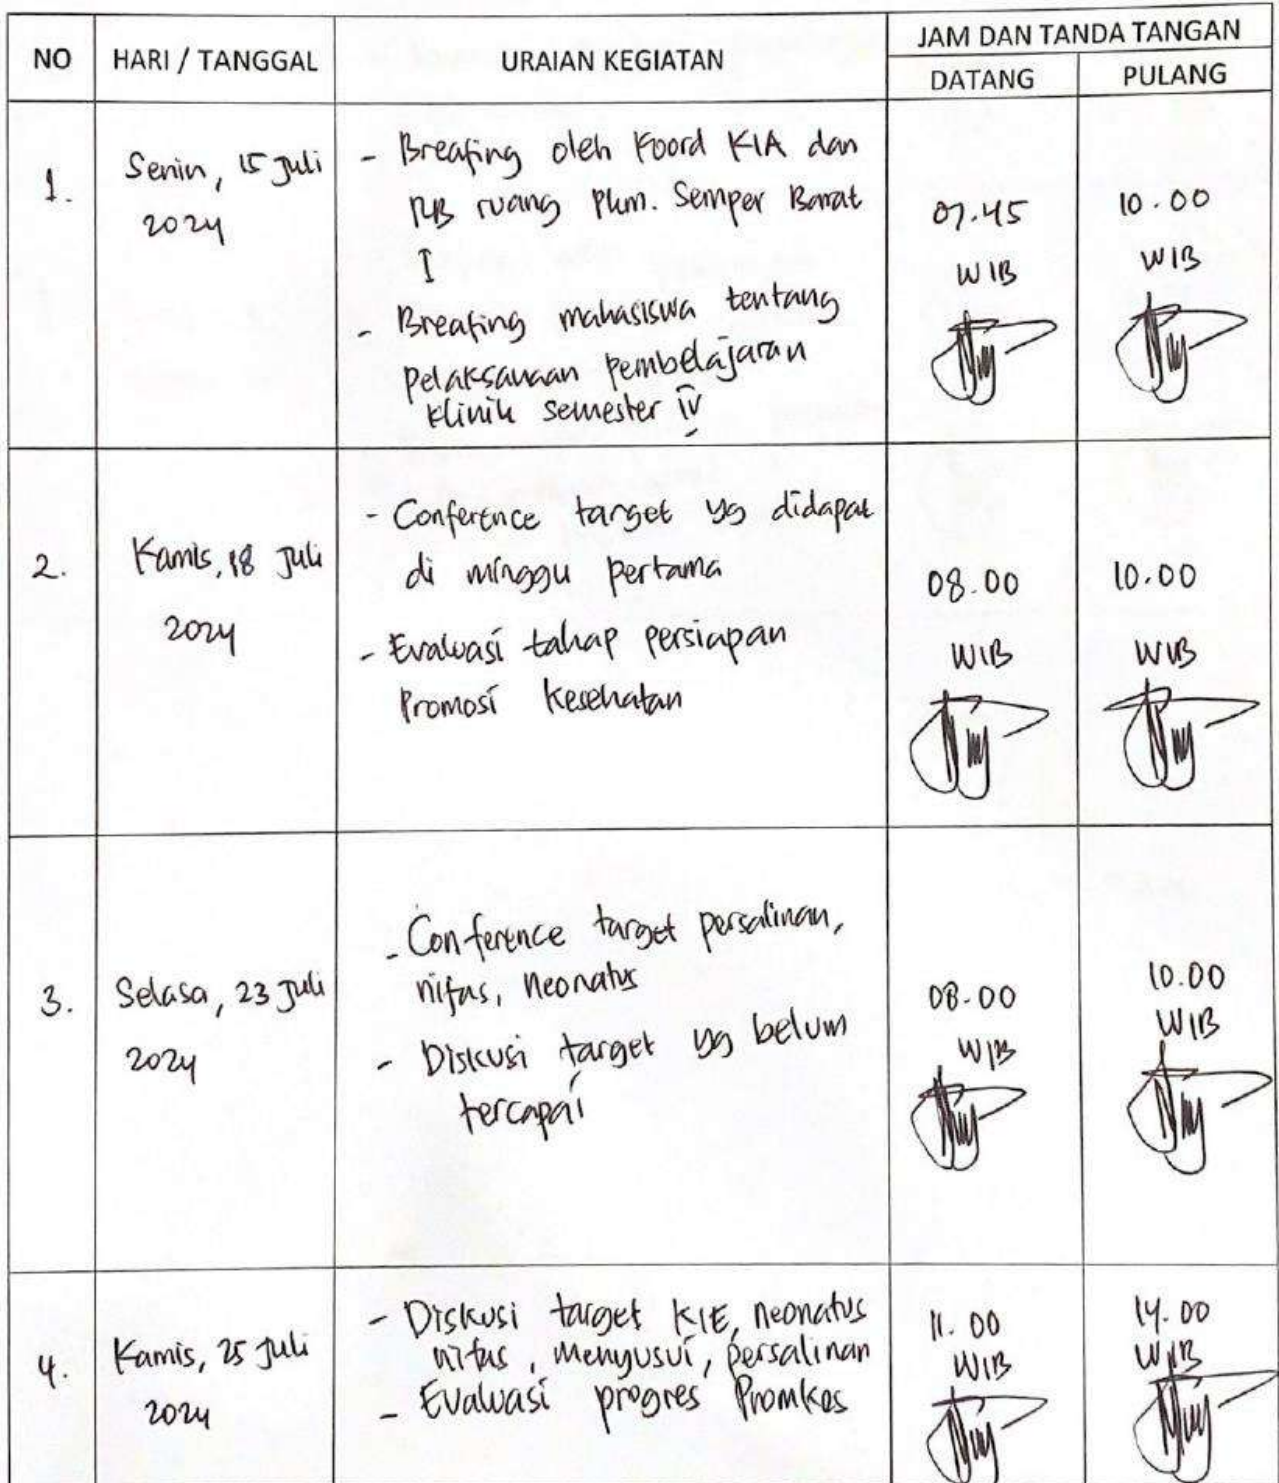 NO HARI / TANGGAL URAIAN KEGIATAN JAM DAN TANDA TANGAN
DATANG PULANG
1. Senin, 15 Juli
2024
- Breafing oleh Koord KIA dan
RB ruang Pkm. Semper Barat
I
- Breafing mahasiswa tentang
pelaksanaan pembelajaran
klinik semester IV
07.45
WIB
10.00
WIB
2. Kamis, 18 Juli
2024
- Conference target yg didapat
di minggu pertama
- Evaluasi tahap persiapan
Promosi Kesehatan
08.00
WIB
10.00
WIB
3. Selasa, 23 Juli
2024
- Conference target persalinan,
nifas, neonatus
- Diskusi target yg belum
tercapai
08.00
WIB
10.00
WIB
4. Kamis, 25 Juli
2024
- Diskusi target KIE, neonatus
nifas, menyusui, persalinan
- Evaluasi progres Promkes
11.00
WIB
14.00
WIB